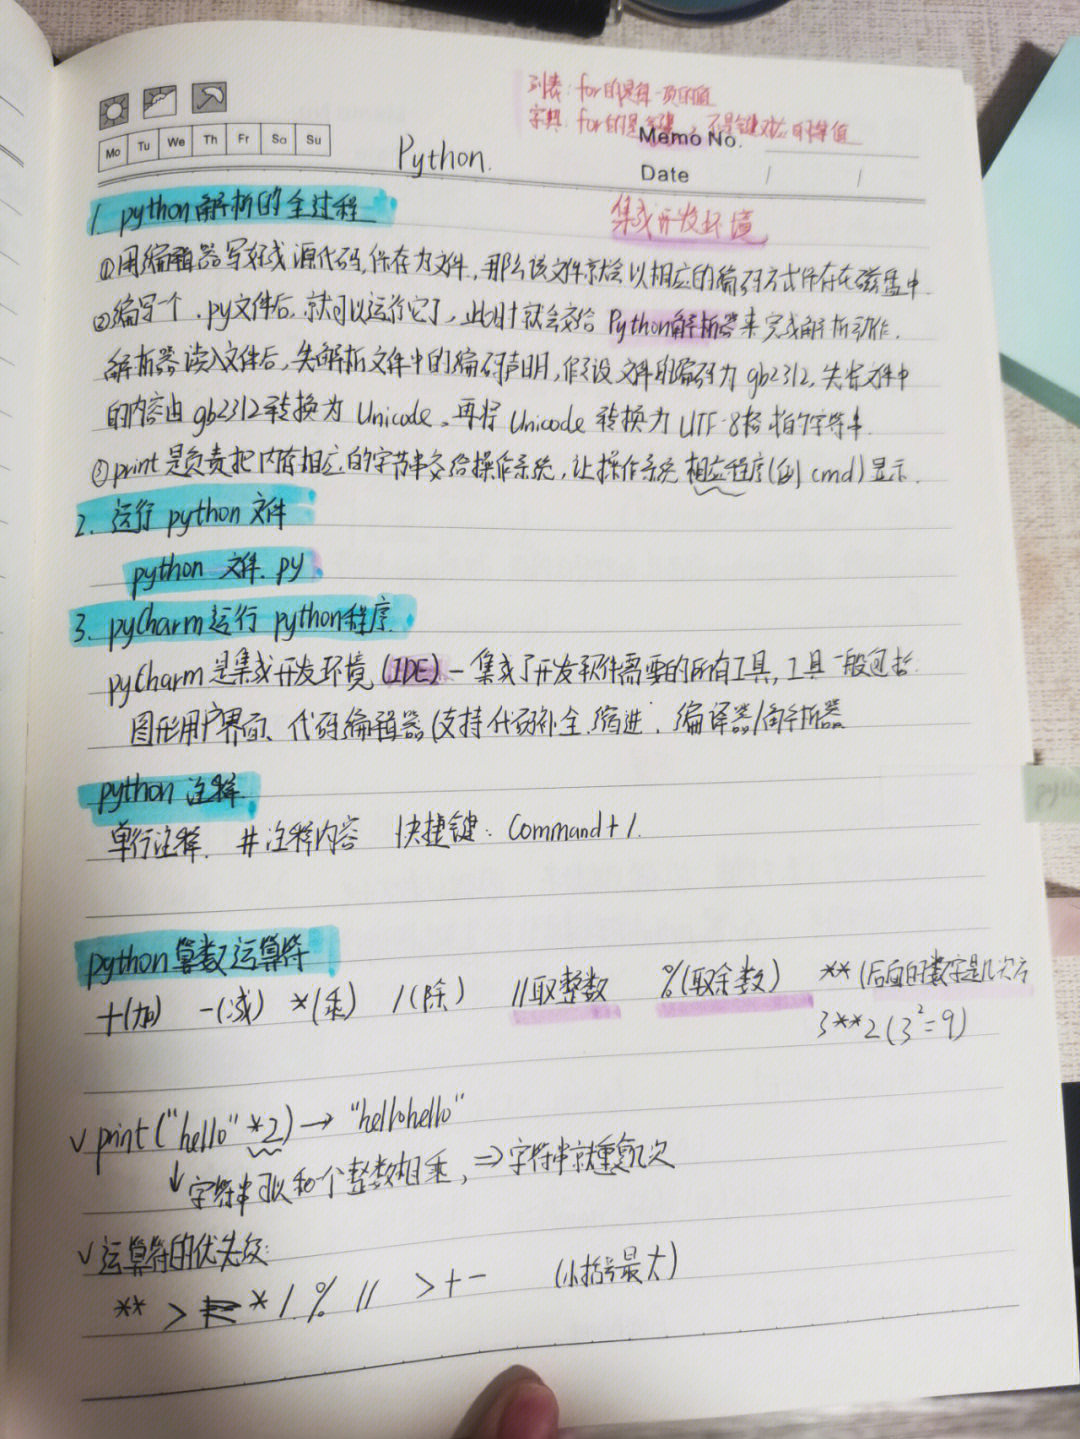 列表：for的是每一项的值
字典：for的是键，不是键对应的值
Memo No.
Mo Tu We Th Fr Sa Su
Python.
Date / /
1. python解析的全过程
集成开发环境
①用编辑器写好成源代码,保存为文件,那么该文件就会以相应的编码方式保存在磁盘中.
②编写一个.py文件后,就可以运行它了,此时就会交给Python解析器来完成解析动作.
解析器读入文件后,先解析文件中的编码声明,假设文件的编码为gb2312,先将文件中
的内容由gb2312转换为Unicode,再将Unicode转换为UTF-8格式的字符串
③print是负责把内存相应的字节串交给操作系统,让操作系统相应程序(例cmd)显示.
2. 运行python文件
python 文件.py
3. pyCharm运行python程序.
pyCharm是集成开发环境(IDE)-集成了开发软件需要的所有工具,工具一般包括.
图形用户界面、代码编辑器(支持代码补全.缩进.编译器/解析器
python注释.
单行注释. #注释内容 快捷键: Command+/.
python算数运算符
+(加) -(减) *(乘) /(除) //取整数 %(取余数) **(后面的数字是几次方
3**2(3²=9)
√print("hello"*2)→"hellohello"
↓字符串可以和个整数相乘,⇒字符串就重复几次
√运算符的优先级:
** > * / % // > + - (小括号最大)